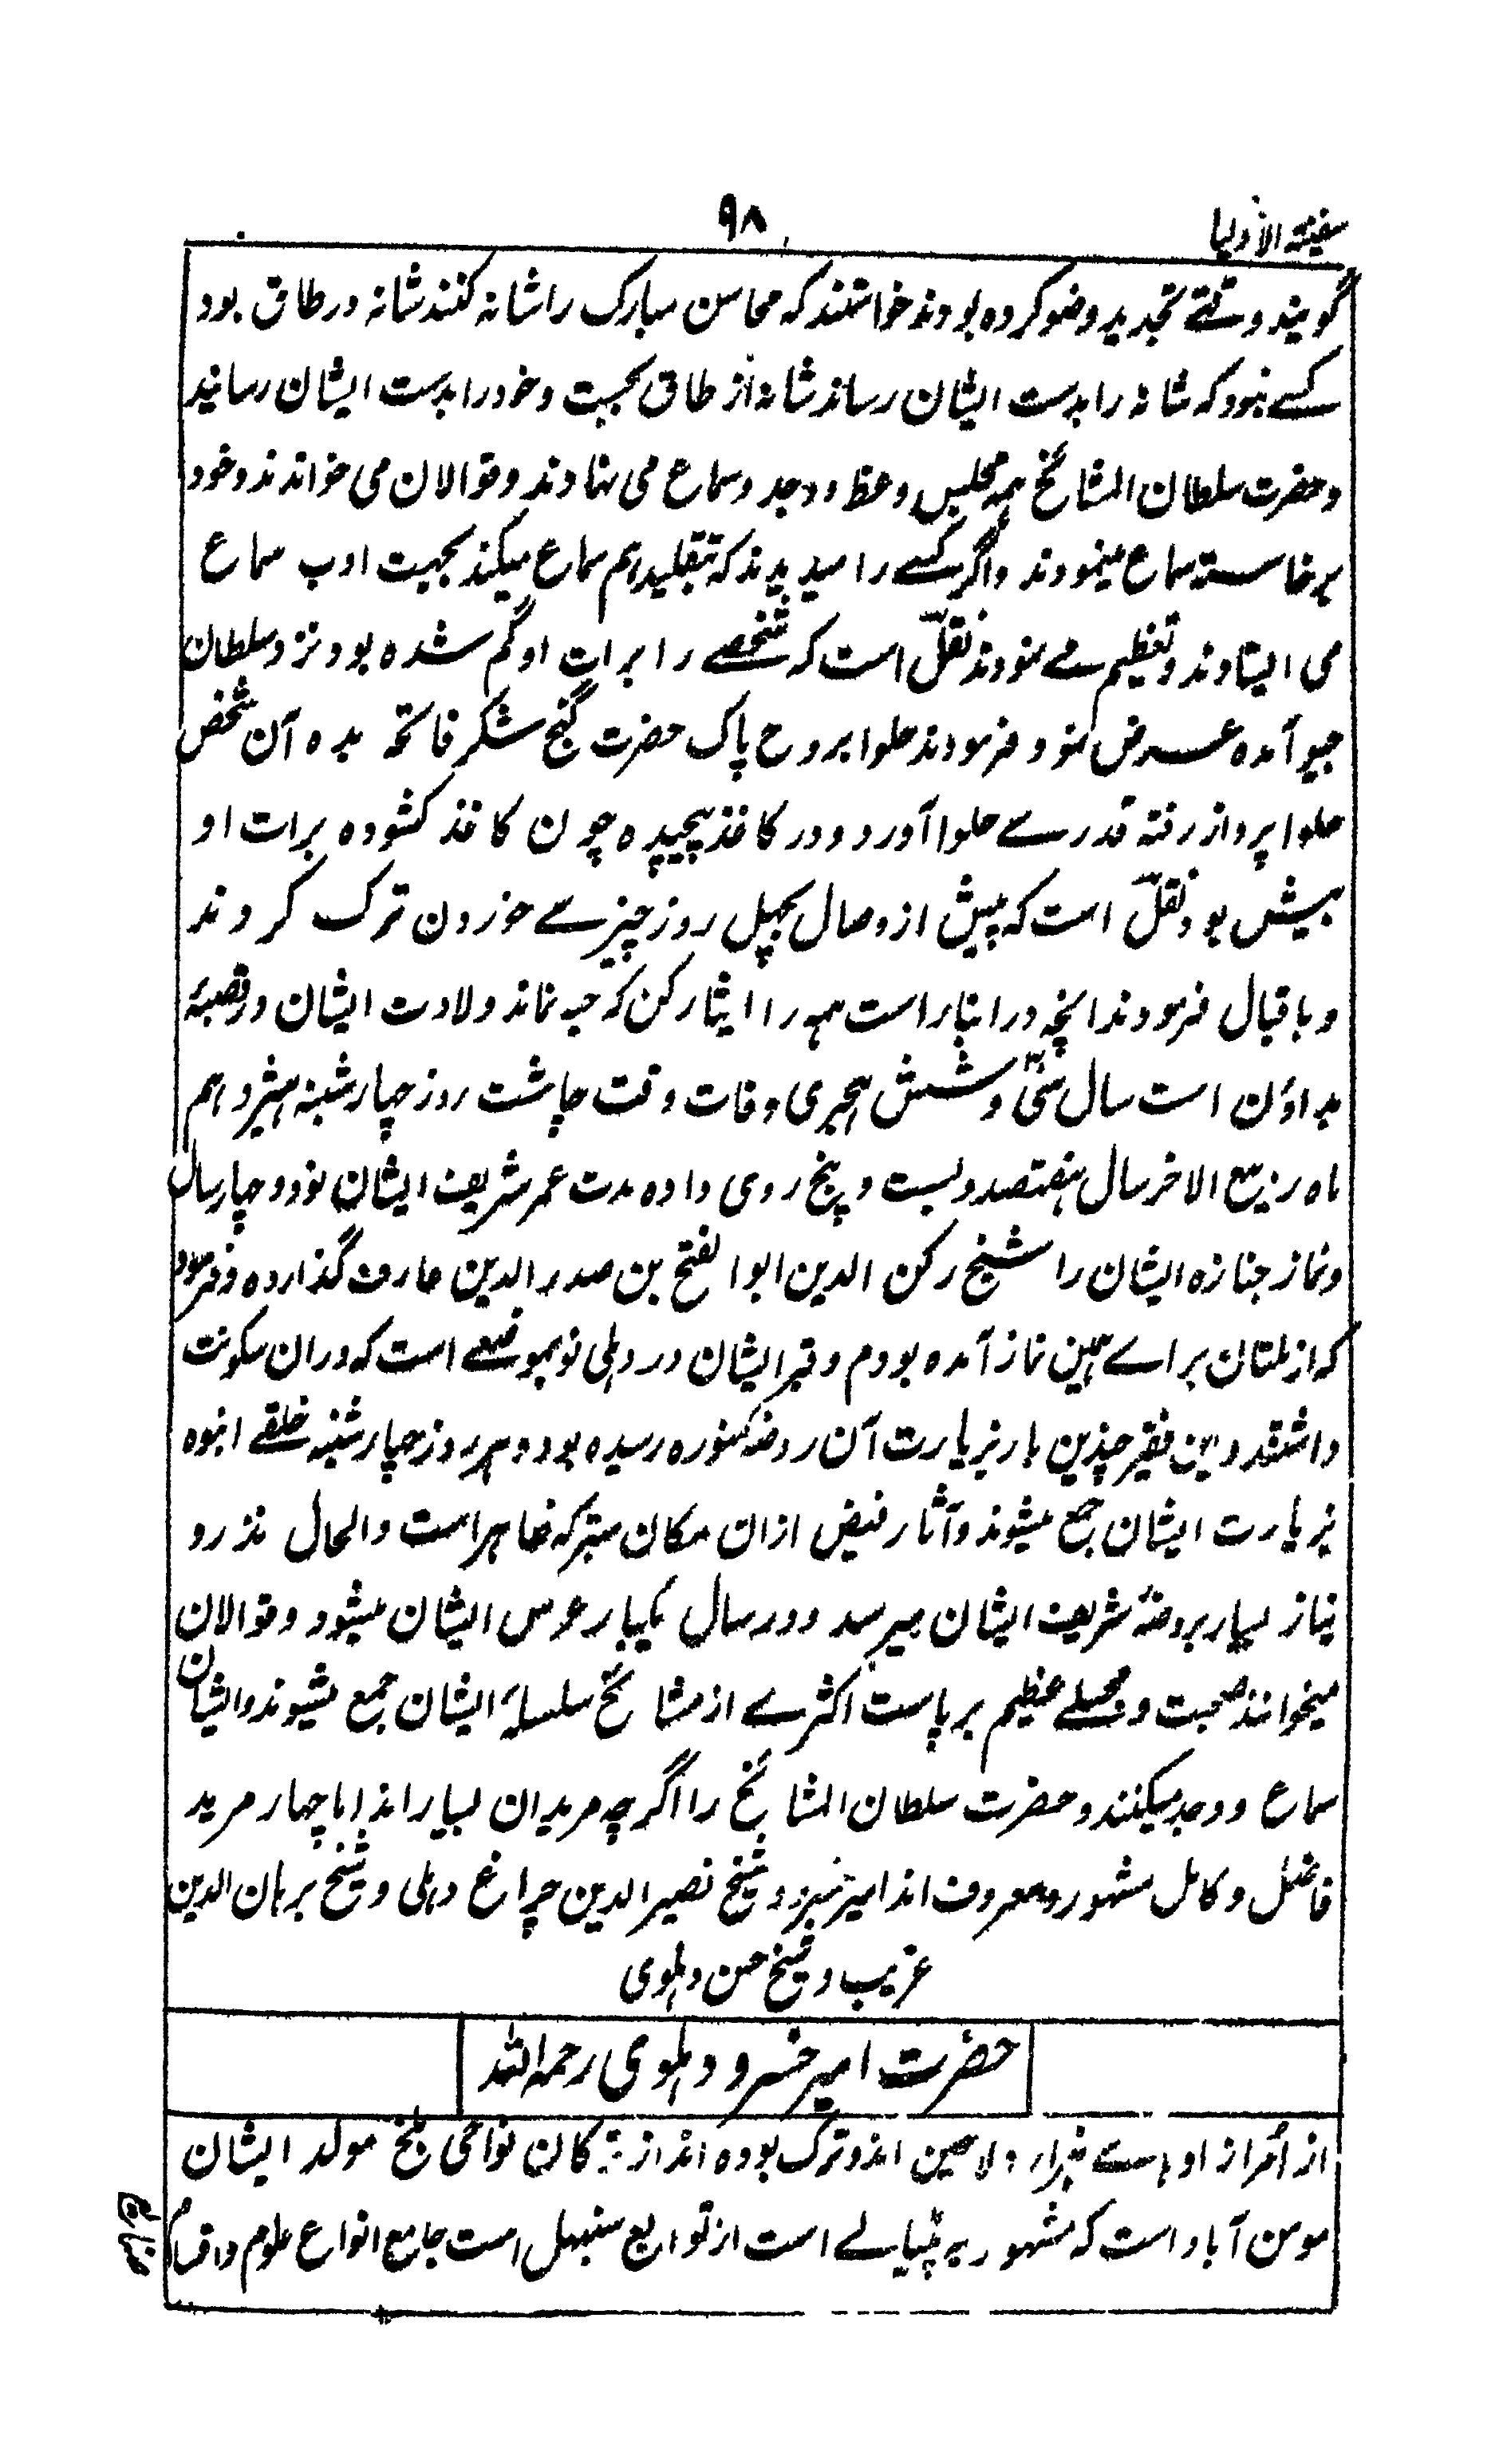 سفینة الاولیا
۹۸
گویند وقتے تجدید وضو کرده بودند خواستند که محاسن مبارک را شانه کنند شانه در طاق بود
کسے نبود که شانه را بدست ایشان رساند شانه از طاق بجست و خود را بدست ایشان رسانید
و حضرت سلطان المشائخ همه مجلس وعظ و وجد و سماع می نهادند و قوالان می خواندند و خود
برخاسته سماع مینمودند و اگر کسے را میدیدند که بتقلید هم سماع میکند بجهت ادب سماع
می ایستادند و تعظیم مے نمودند نقل است که شخصے را برات او گم شده بود نزد سلطان
جیو آمده عرض نمود فرمودند حلوا بروح پاک حضرت گنج شکر فاتحه بده آن شخص
حلوا پرداز رفته قدرے حلوا آورد و در کاغذ پیچیده چون کاغذ کشوده برات او
بیش بود نقل است که پیش از وصال بچهل روز چیزے خوردن ترک کردند
و باقبال فرمودند انچه در انبار است همه را ایثار کن که حبه نماند ولادت ایشان در قصبۀ
بداؤن است سال سی و شش هجری وفات وقت چاشت روز چهارشنبه هیژدهم
ماه ربیع الاخر سال هفتصد و بست و پنج روی داده مدت عمر شریف ایشان نود و چهار سال
و نماز جنازه ایشان را شیخ رکن الدین ابو الفتح بن صدر الدین عارف گذارده و فرمود
که از ملتان براے همین نماز آمده بودم و قبر ایشان در دهلی نو بموضعے است که دران سکونت
داشتند و این فقیر چندین بار بزیارت آن روضه منوره رسیده بود و هر روز چهارشنبه خلقے انبوه
بزیارت ایشان جمع میشوند و آثار فیض ازان مکان متبرکه ظاهر است والحال نذر و
نیاز بسیار بروضۀ شریف ایشان میرسد و در سال یکبار عرس ایشان میشود و قوالان
میخوانند صحبت و مجلسے عظیم بر پاست اکثرے از مشائخ سلسلۀ ایشان جمع میشوند و ایشان
سماع و وجد میکنند و حضرت سلطان المشائخ را اگرچه مریدان بسیار اند اما چهار مرید
فاضل و کامل مشهور و معروف اند امیر خسرو و شیخ نصیر الدین چراغ دهلی و شیخ برهان الدین
غریب و شیخ حسن دهلوی
حضرت امیر خسرو دهلوی رحمه الله
از اُمرا زادهاے هزاره لاچین اند و ترک بوده اند از ترکان نواحی بلخ مولد ایشان
مومن آباد است که مشهور به پٹیالے است از توابع سنبهل است جامع انواع علوم و اقسام